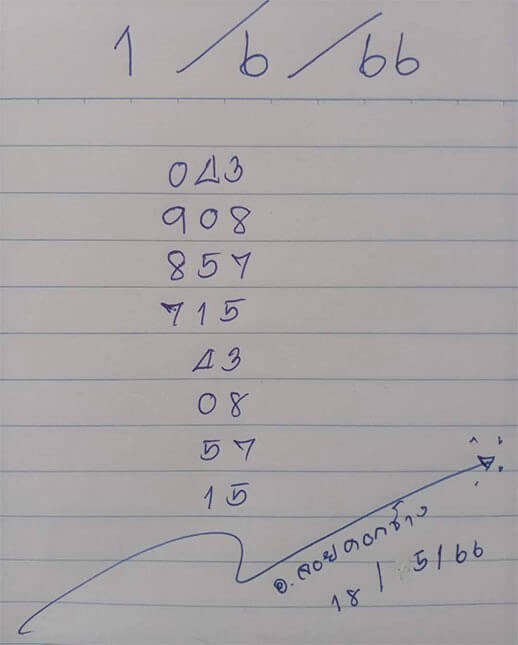 1/6/66
043
908
857
715
43
08
57
15
อ.ลอยดอกช้าง
18/5/66